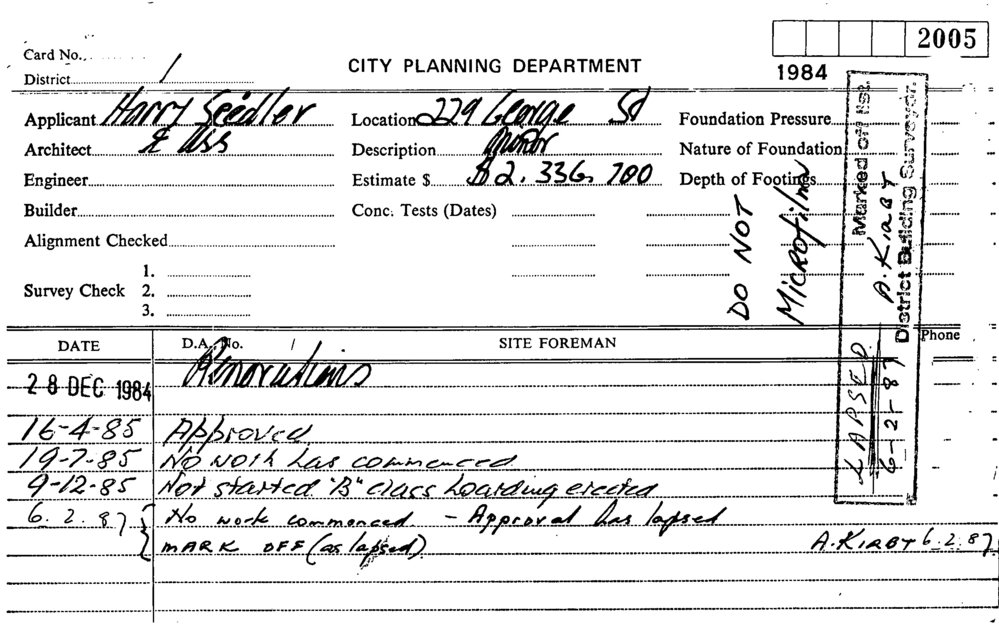 2005
Card No.
1984
District 1
CITY PLANNING DEPARTMENT
Applicant Harry Seidler
Location 229 George St
Foundation Pressure
Architect & Ass
Description
Nature of Foundation
Engineer
Estimate $ $2.336.700
Depth of Footings
Builder
Conc. Tests (Dates)
Alignment Checked
1.
Survey Check 2.
3.
DO NOT
Microfilm
Marked off list.
A. KIRBY
District Building Surveyor.
LAPSED
6-2-87
DATE
D.A. No. /
SITE FOREMAN
Phone
28 DEC 1984
Renovations
16-4-85 Approved
19-7-85 No work has commenced
9-12-85 Not started "B" class hoarding erected
6.2.87 No work commenced - Approval has lapsed
MARK OFF (as lapsed) A. KIRBY 6.2.87